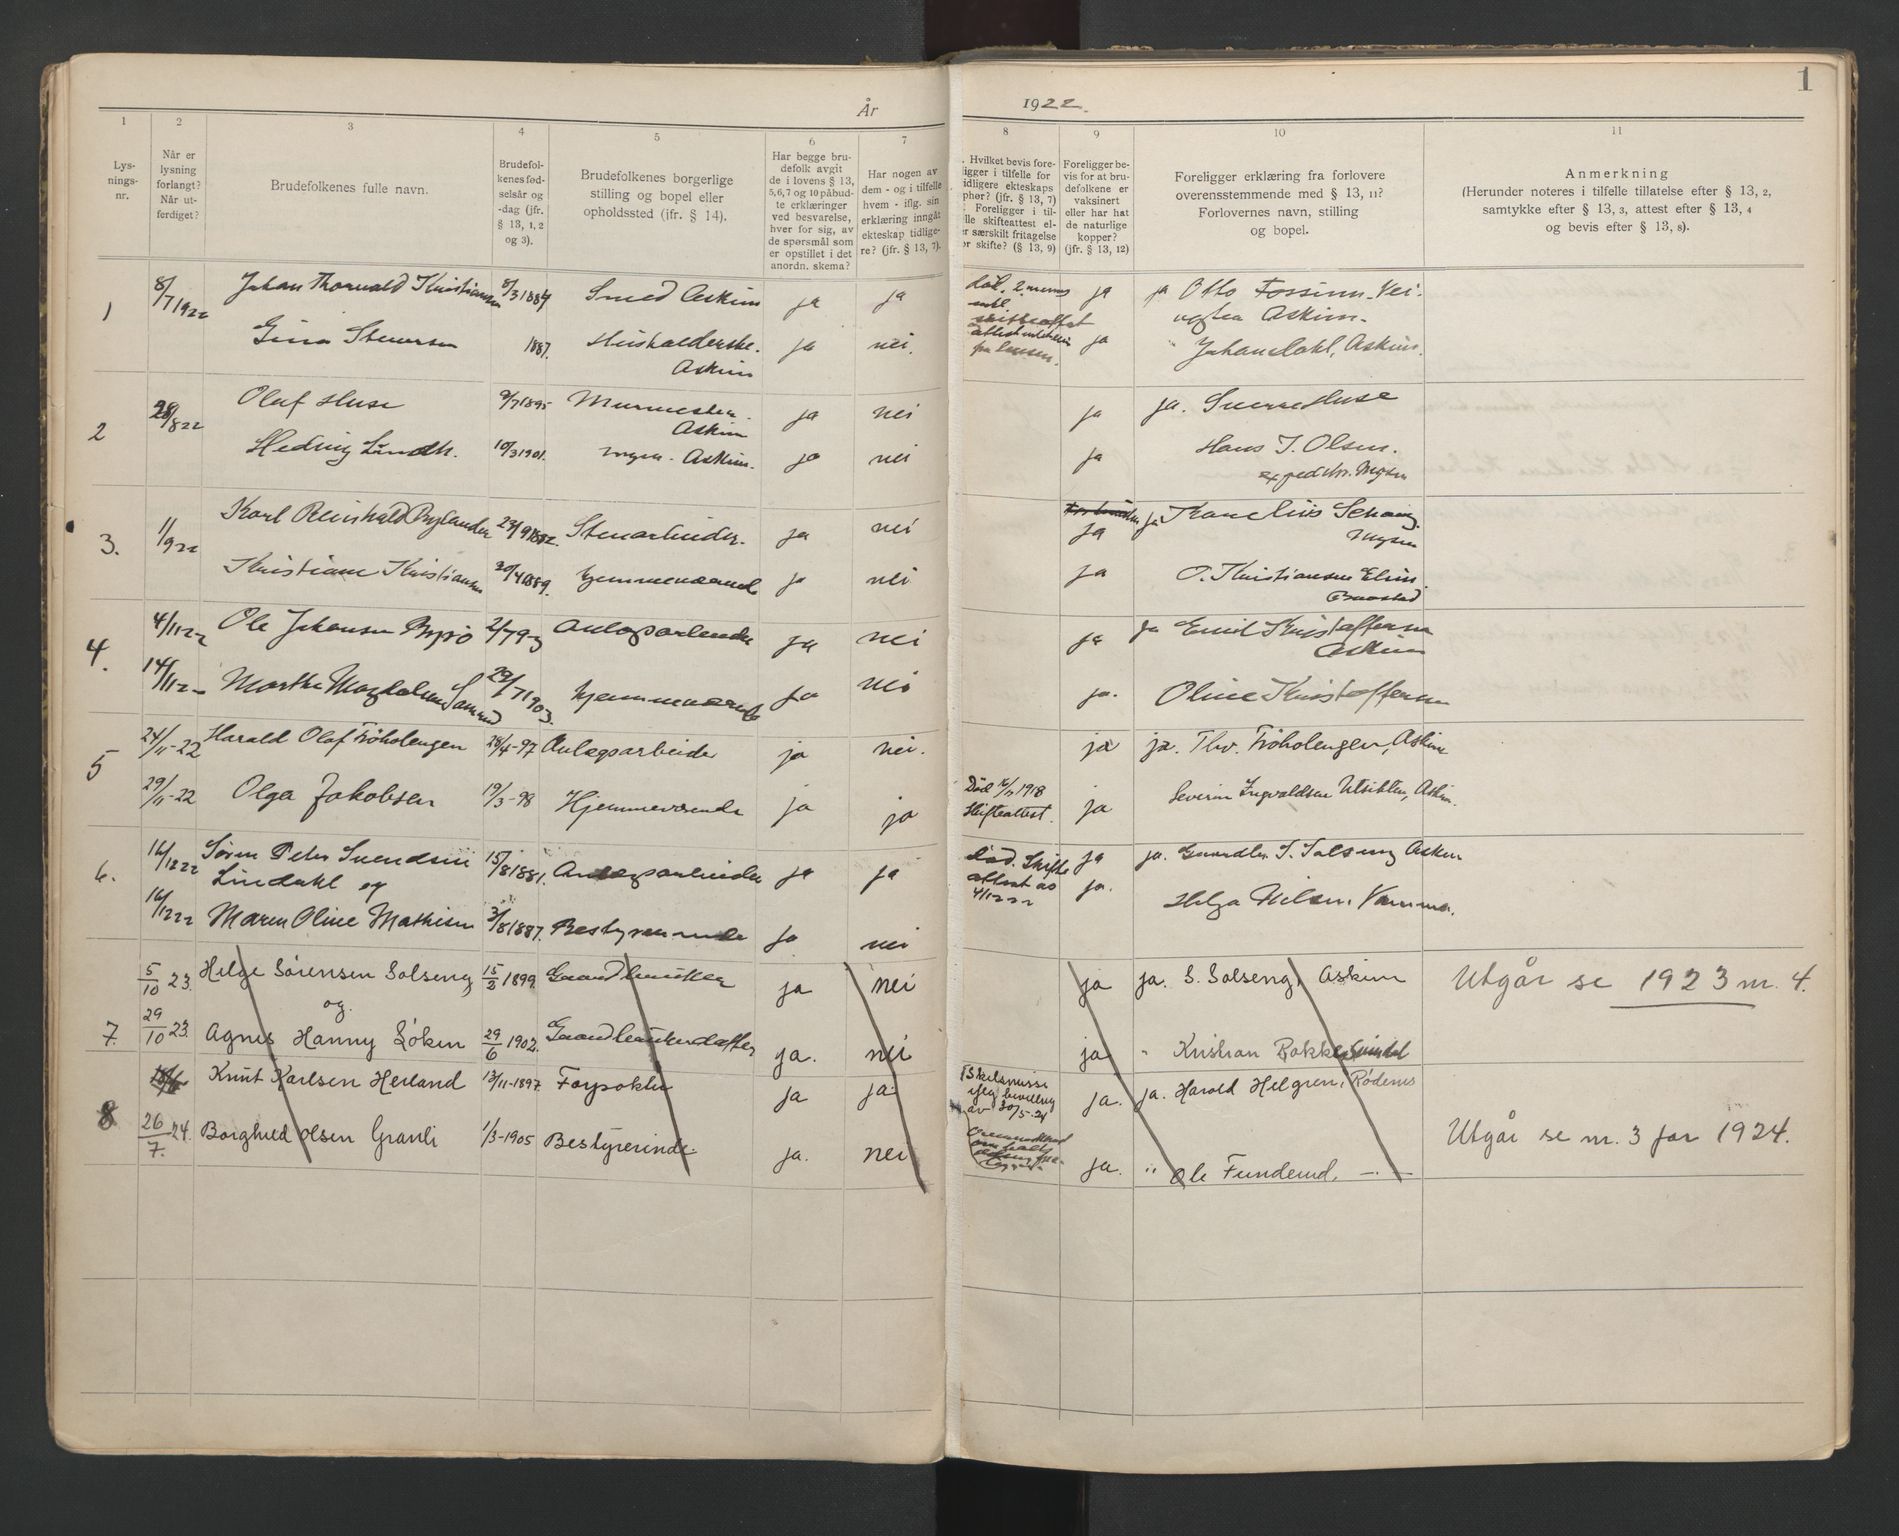 1
År 1922.
1 2 3 4 5 6 7 8 9 10 11
Lys-
nings-
nr.
Når er
lysning
forlangt?
Når ut-
ferdiget?
Brudefolkenes fulle navn.
Brudefol-
kenes fød-
selsår og
-dag (jfr.
§ 13, 1, 2
og 3).
Brudefolkenes borgerlige
stilling og bopel eller
opholdssted (jfr. § 14).
Har begge bru-
defolk avgit
de i lovens § 13,
5,6,7 og 10 påbud-
te erklæringer
ved besvarelse,
hver for sig, av
de spørsmål som
er opstillet i det
anordn. skema?
Har nogen av
dem - og i tilfelle
hvem - iflg. sin
erklæring inngåt
ekteskap tidlige-
re? (jfr. § 13, 7).
Hvilket bevis fore-
ligger i tilfelle for
tidligere ekteskaps
ophør? (jfr. § 13, 7)
Foreligger i til-
felle skifteattest el-
ler særskilt fritagelse
for skifte? (§ 13, 9)
Foreligger be-
vis for at bru-
defolkene er
vaksinert
eller har hat
de naturlige
kopper?
(jfr. § 13, 12)
Foreligger erklæring fra forlovere
overensstemmende med § 13, 11?
Forlovernes navn, stilling
og bopel.
Anmerkning
(Herunder noteres i tilfelle tillatelse efter § 13, 2,
samtykke efter § 13, 3, attest efter § 13, 4
og bevis efter § 13, 8).
1 8/7 1922 Johan Thorvald Kristiansen 8/3 1884 Smed Askim ja ja ja ja Otto Fossum
Askim.
Gina 1887. Husholderske. ja nei. ja Johan Dahl, Askim.
Askim
2 28/8 22 Olaf Huse 9/7 1895 Murmester. ja nei ja ja. Sverre Huse
Askim
Hedvig Lindh. 10/3 1901. Askim. ja nei ja Hans J. Olsen.
Mysen
3. 1/9 22 Karl Reinhold Rylander 23/9 1882. Stenarbeider. ja nei ja ja
Mysen
Kristiane Kristiansen 20/4 1889. hjemmeværende ja nei ja O. Kristiansen
4. 4/11 22 Ole Johansen 2/7 93 Anlegsarbeider ja nei ja ja Emil Kristoffersen
Askim
14/11 22 Marthe Magdalene 29/7 1903. hjemmeværende ja nei ja. Oline Kristoffersen
5 24/11-22 Harald Olaf Trøholengen 28/4-97 Anlegsarbeider ja nei. ja ja. Thv. Trøholengen, Askim
29/11-22 Olga Jakobsen 19/3-98 Hjemmeværende ja ja Død 1918
Skifteattest. ja Severin Ingvaldsen Utsikten, Askim.
6. 16/12 22 Søren Peter Svendsen 15/8 1881. Anlegsarbeider ja ja død. Skifte
attest av
4/12 22 ja ja. Gaardbr. S. Solseng Askim
Lindahl og ja.
16/12 22 Maren Oline Mathisen 3/8 1887. Bestyrerinde ja nei Helga Nilsen, Vamma.
5/10 23. Helge Sørensen Solseng 15/2 1899. Gaardbruker ja nei ja ja. S. Solseng, Askim Utgår se 1923 nr. 4.
og
7. 29/10 23. Agnes Hanny Løken 29/6 1902. Gaardbrukerdatter ja. nei ja " Kristian Rakkestad
Knut Karlsen Heiland 13/11-1897. Forpakter ja ja Skilsmisse
iflg. bevilling
av 30/5-24 ja. ja. Harald Helgren, Rødenes
8 26/7. 24. Borghild Olsen Granli 1/3-1905 Bestyrerinde. ja. nei ja. " Ole Funderud, —"— Utgår se nr. 3 for 1924.